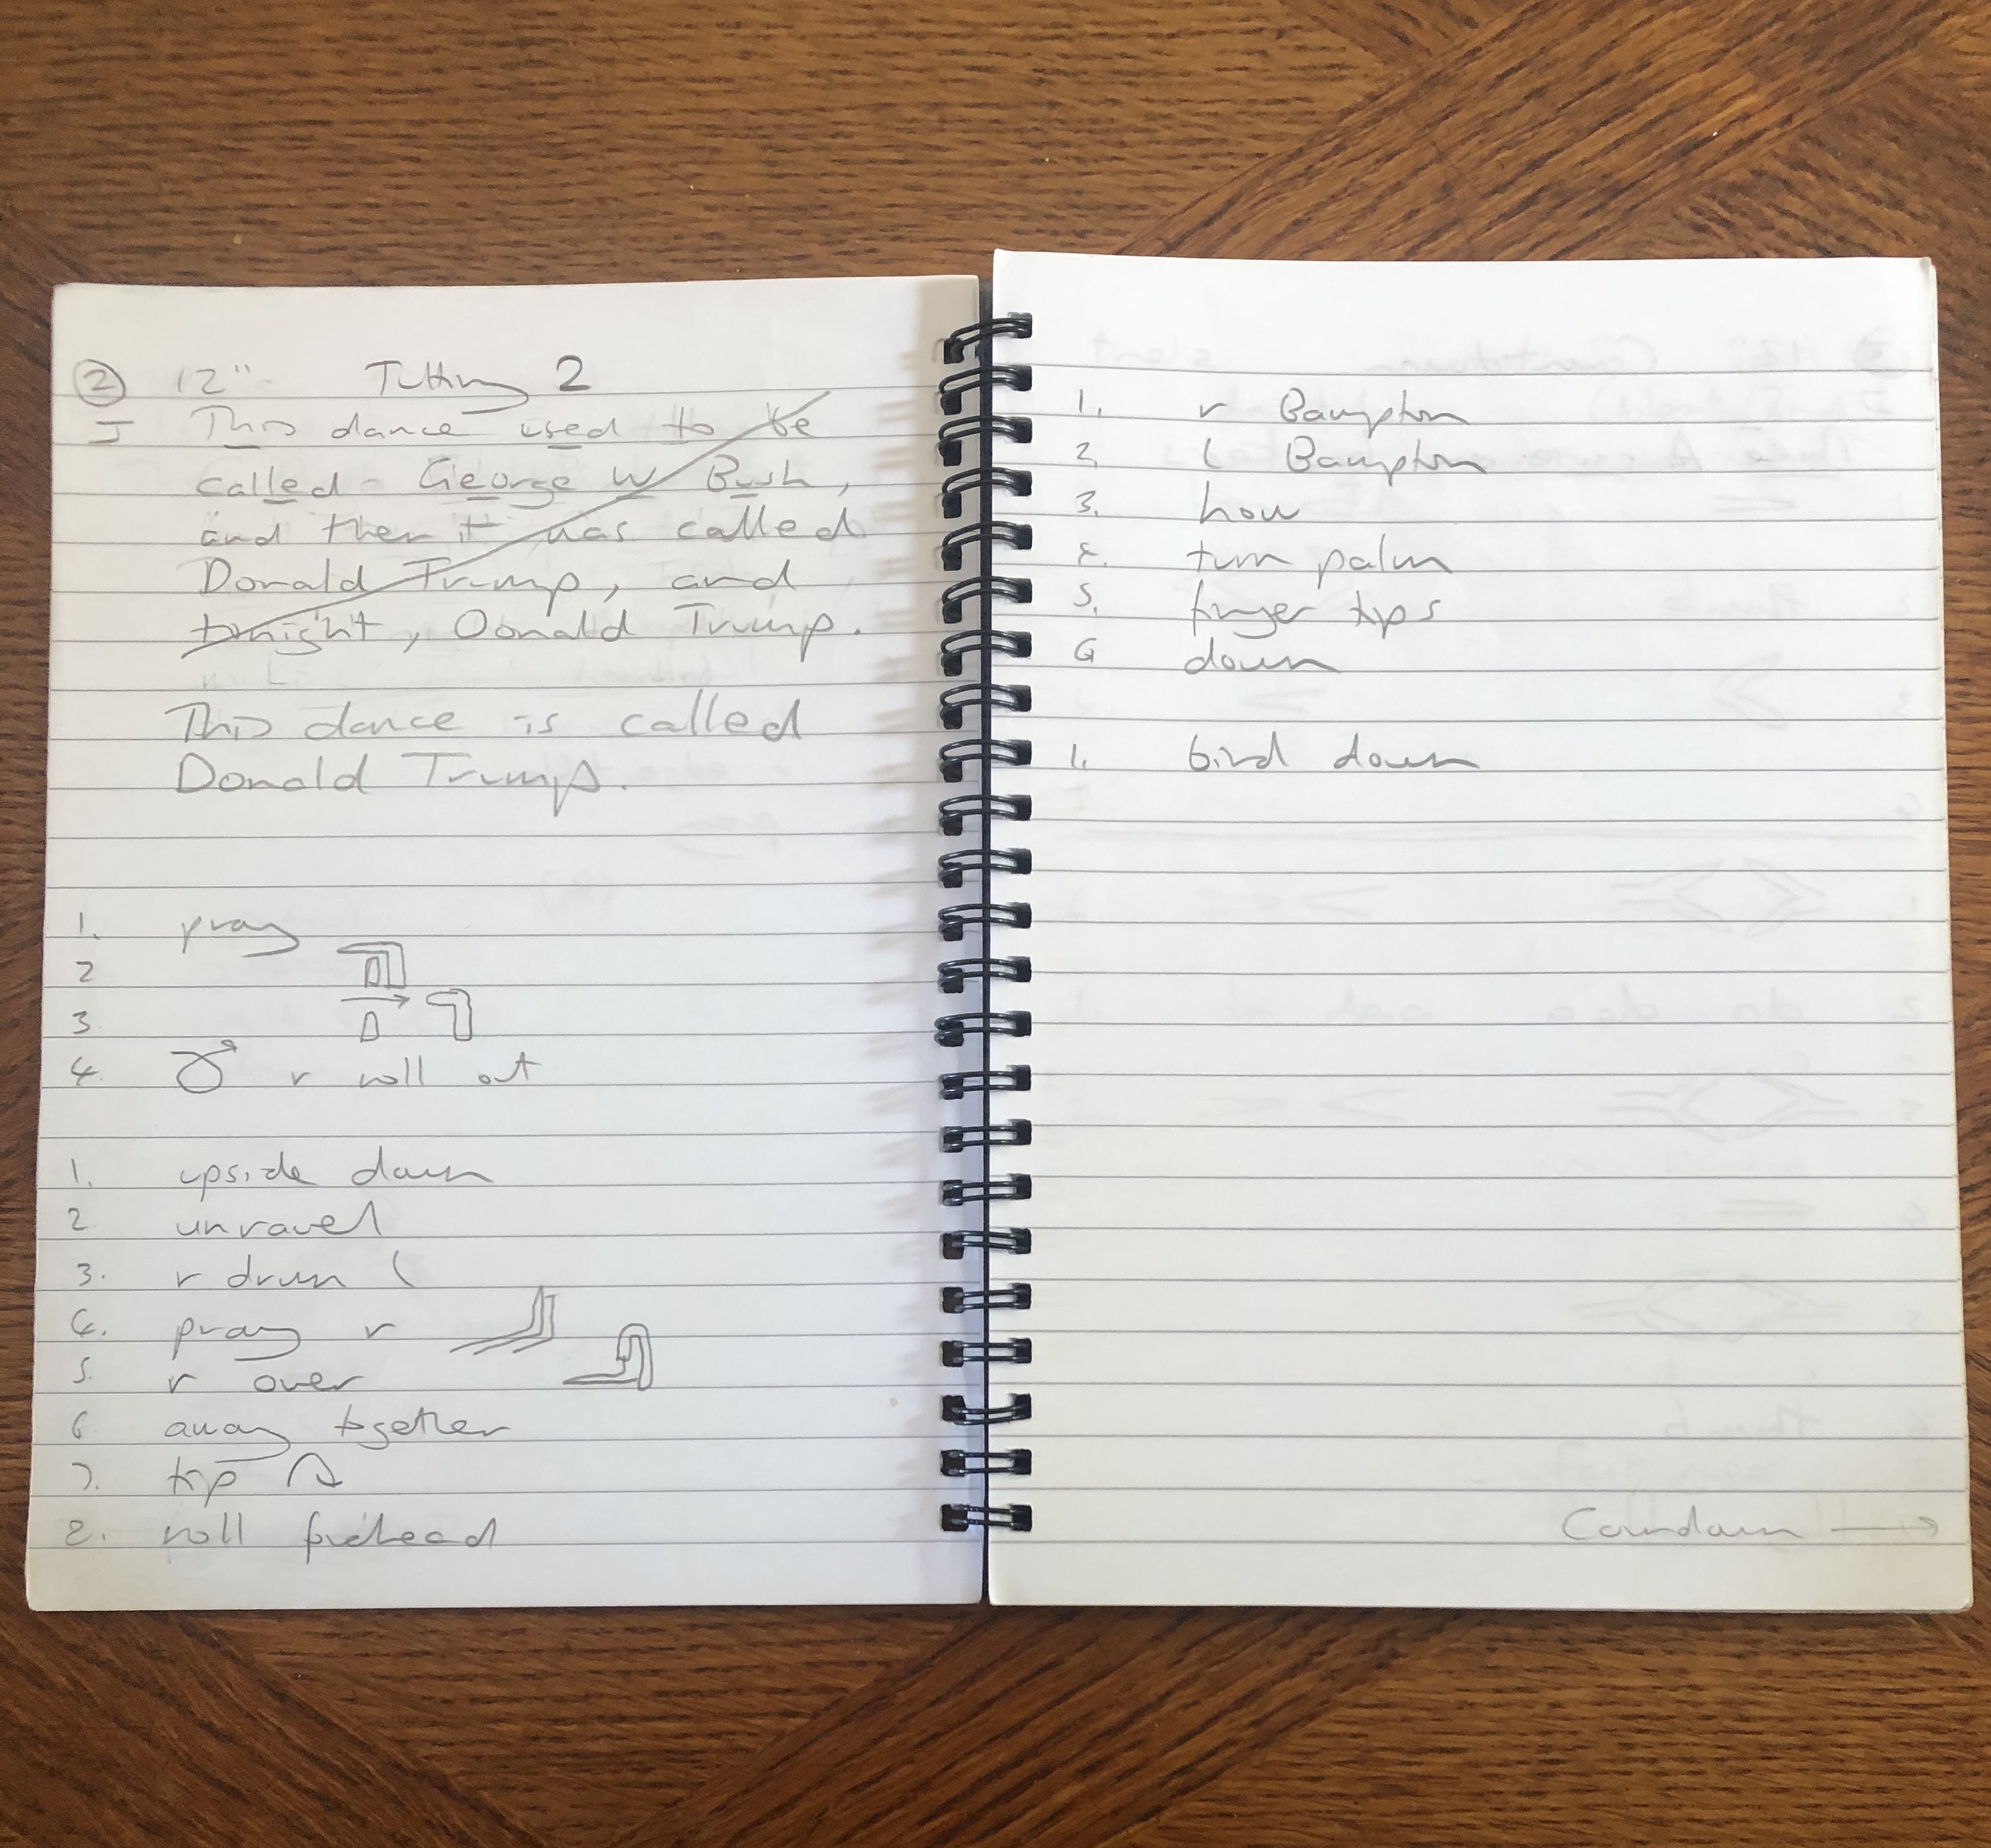 ② 12" Tutting 2
J This dance used to be
called - George W Bush,
and then it was called
Donald Trump, and
tonight, Donald Trump.
This dance is called
Donald Trump.
1. pray
2
3.
4. r roll out
1. upside down
2. unravel
3. r drum l
4. pray r
5. r over
6. away together
7. tip
8. roll forehead
1. r Bampton
2. l Bampton
3. how
4. turn palm
5. finger tips
6 down
1. bird down
Countdown →